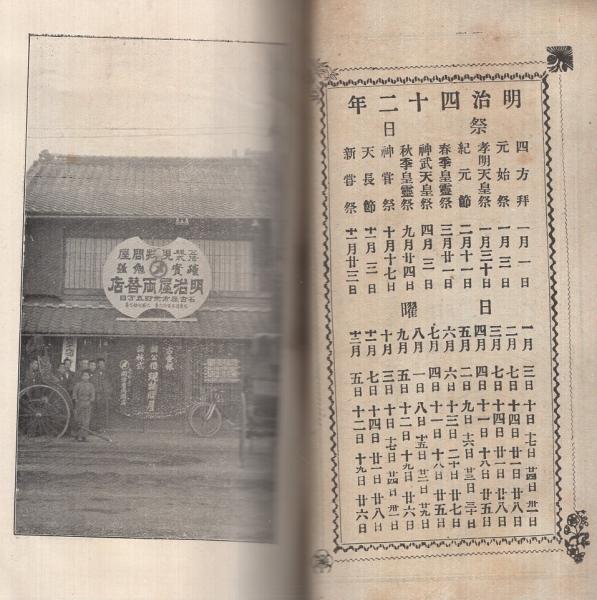 明治四十二年
祭日
四方拜 一月一日
元始祭 一月三日
孝明天皇祭 一月三十日
紀元節 二月十一日
春季皇靈祭 三月廿一日
神武天皇祭 四月三日
秋季皇靈祭 九月廿四日
神嘗祭 十月十七日
天長節 十一月三日
新嘗祭 十一月廿三日
日曜
一月 三日 十日 十七日 廿四日 卅一日
二月 七日 十四日 廿一日 廿八日
三月 七日 十四日 廿一日 廿八日
四月 四日 十一日 十八日 廿五日
五月 二日 九日 十六日 廿三日 三十日
六月 六日 十三日 二十日 廿七日
七月 四日 十一日 十八日 廿五日
八月 一日 八日 十五日 廿二日 廿九日
九月 五日 十二日 十九日 廿六日
十月 三日 十日 十七日 廿四日 卅一日
十一月 七日 十四日 廿一日 廿八日
十二月 五日 十二日 十九日 廿六日
公債株式現物問屋
確實勉強
明治屋両替店